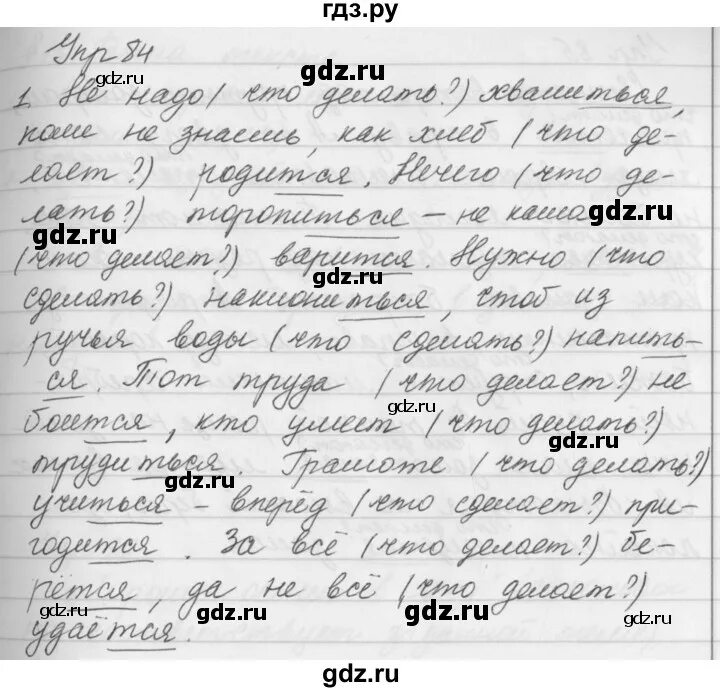 гдз.ру
Упр 84
1. Не надо (что делать?) хвалиться,
коли не знаешь, как хлеб (что де-
gdz.ru
лает?) родится. Нечего (что де-
лать?) торопиться – не каша
gdz.ru gdz.ru
(что делает?) варится. Нужно (что
gdz.ru
сделать?) наклониться, чтоб из
ручья воды (что сделать?) напить-
ся. Тот труда (что делает?) не
gdz.ru
боится, кто умеет (что делать?)
gdz.ru
трудиться. Грамоте (что делать?)
gdz.ru
учиться – вперёд (что сделает?) при-
годится. За всё (что делает?) бе-
рётся, да не всё (что делает?)
gdz.ru gdz.ru
удаётся.
gdz.ru
gdz.ru
gdz.ru